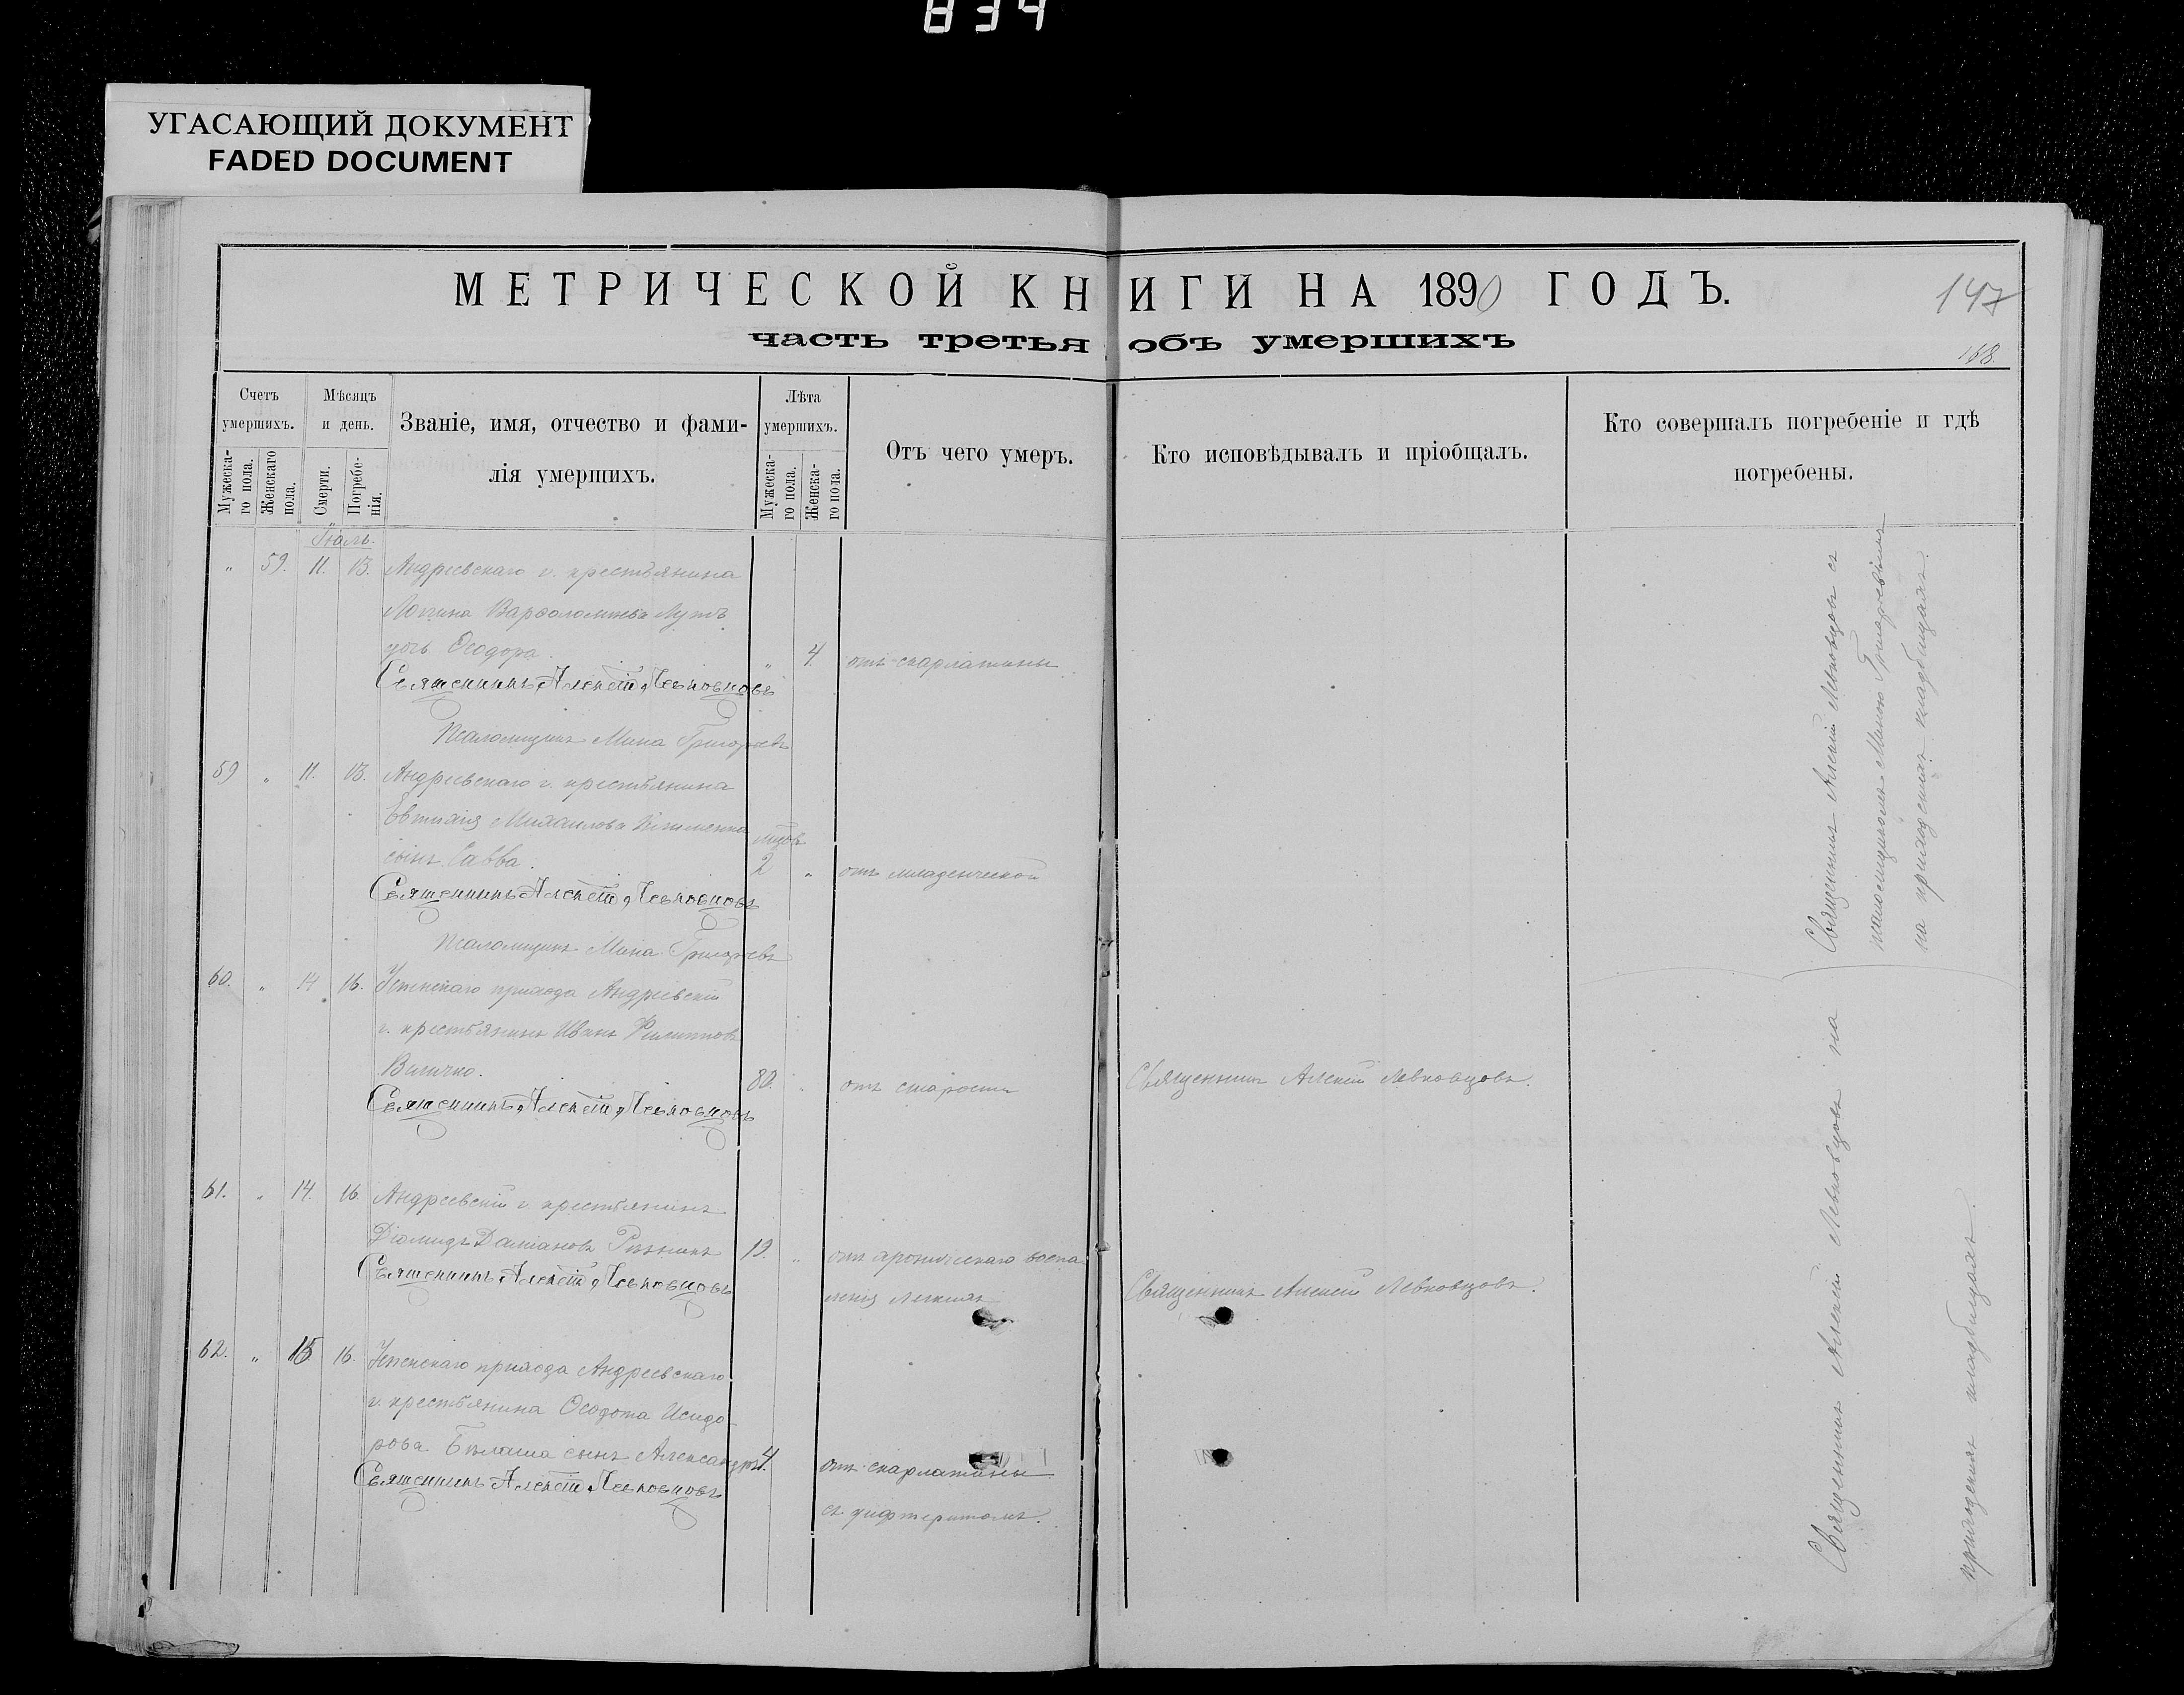 834
УГАСАЮЩИЙ ДОКУМЕНТ
FADED DOCUMENT
МЕТРИЧЕСКОЙ КНИГИ НА 1890 ГОДЪ.
147
часть третья объ умершихъ
168.
Счетъ умершихъ.
Мужеска-го пола.
Женскаго пола.
Мѣсяцъ и день.
Смерти.
Погребе-нія.
Званіе, имя, отчество и фами-
лія умершихъ.
Лѣта умершихъ.
Мужеска-го пола.
Женска-го пола.
Отъ чего умеръ.
Кто исповѣдывалъ и пріобщалъ.
Кто совершалъ погребеніе и гдѣ
погребены.
Іюль.
" 59. 11. 13. Андреевскаго с. крестьянина
Логина Варѳоломѣева
дочь Ѳеодора. " 4. отъ скарлатины
Священникъ Алексѣй Левковцовъ
Псаломщикъ Мина Григоревъ
59 " 11. 13. Андреевскаго с. крестьянина
Евтихія Михаилова
сынъ Савва. мѣсяц. 2 " отъ младенческой
Священникъ Алексѣй Левковцовъ
Псаломщикъ Мина Григоревъ
60. " 14 16. Успенскаго прихода Андреевскій
с. крестьянинъ Иванъ Филипповъ
Величко. 80. " отъ старости Священникъ Алексѣй Левковцовъ.
Священникъ Алексѣй Левковцовъ
61. " 14. 16 Андреевскій с. крестьянинъ
Діомидъ Даміановъ Рѣзникъ 19. " отъ хроническаго воспа-
ленія легкихъ Священникъ Алексѣй Левковцовъ.
Священникъ Алексѣй Левковцовъ
62. " 15 16. Успенскаго прихода Андреевскаго
с. крестьянина Ѳеодота Исидо-
рова Бѣлаша сынъ Александръ 4. отъ скарлатины
съ дифтеритомъ.
Священникъ Алексѣй Левковцовъ
Священникъ Алексѣй Левковцовъ съ
псаломщикомъ Миною Григоревымъ
на приходскихъ кладбищахъ.
Священникъ Алексѣй Левковцовъ на
приходскихъ кладбищахъ.